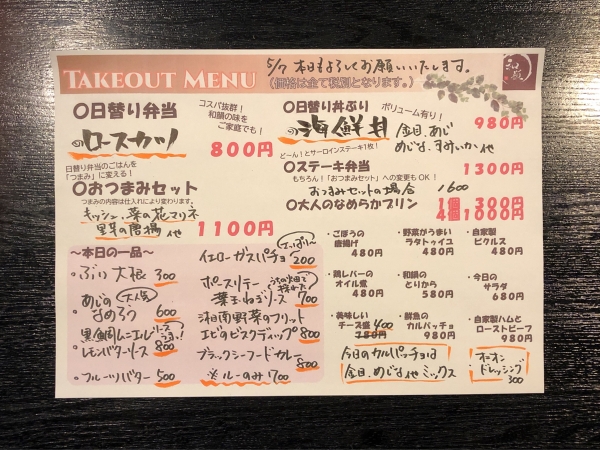 TAKEOUT MENU
5/7 本日もよろしくお願いいたします。
(価格は全て税別となります。)
和蔵
〇日替り弁当
コスパ抜群!
和鍋の味を
ご家庭でも!
のロースカツ
800円
日替り弁当のごはんを
「つまみ」に変える!
〇おつまみセット
つまみの内容は仕入れにより変わります。
キッシュ、菜の花マリネ
里芋の唐揚 他
1100円
〇日替り丼ぶり
ボリューム有り!
980円
の海鮮丼
金目、あじ
めじな、すずき、いか、他
どーん!とサーロインステーキ1枚!
〇ステーキ弁当
1300円
もちろん!「おつまみセット」への変更もOK!
おつまみセットの場合 1600
〇大人のなめらかプリン
1個 300円
4個1000円
～本日の一品～
ぶり大根 300
あじの
なめろう
大人気
600
黒鯛ムニエル
レモンバターソース 800
フルーツバター 500
イエローガスパチョ
200
ポースリテー
葉玉ねぎソース 700
うちの畑で
採れた
湘南野菜のフリット
エビのビスクディップ 800
ブラックシーフードカレー
800
※ルーのみ 700
・ごぼうの
唐揚げ
480円
・野菜がうまい
ラタトゥイユ
480円
・自家製
ピクルス
480円
・鶏レバーの
オイル煮
480円
・和鍋の
とりから
580円
・今日の
サラダ
680円
・美味しい
チーズ盛 400
780円
・鮮魚の
カルパッチョ
980円
・自家製ハムと
ローストビーフ
980円
今日のカルパッチョは
金目、めじな他ミックス
・オニオン
ドレッシング
300